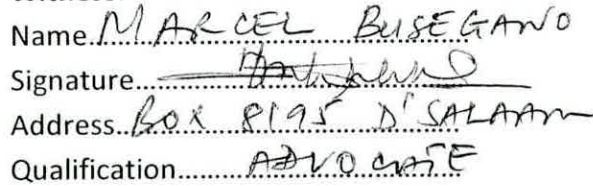 Name MARCEL BUSEGANO
Signature
Address BOX 8195 D'SALAAM
Qualification ADVOCATE